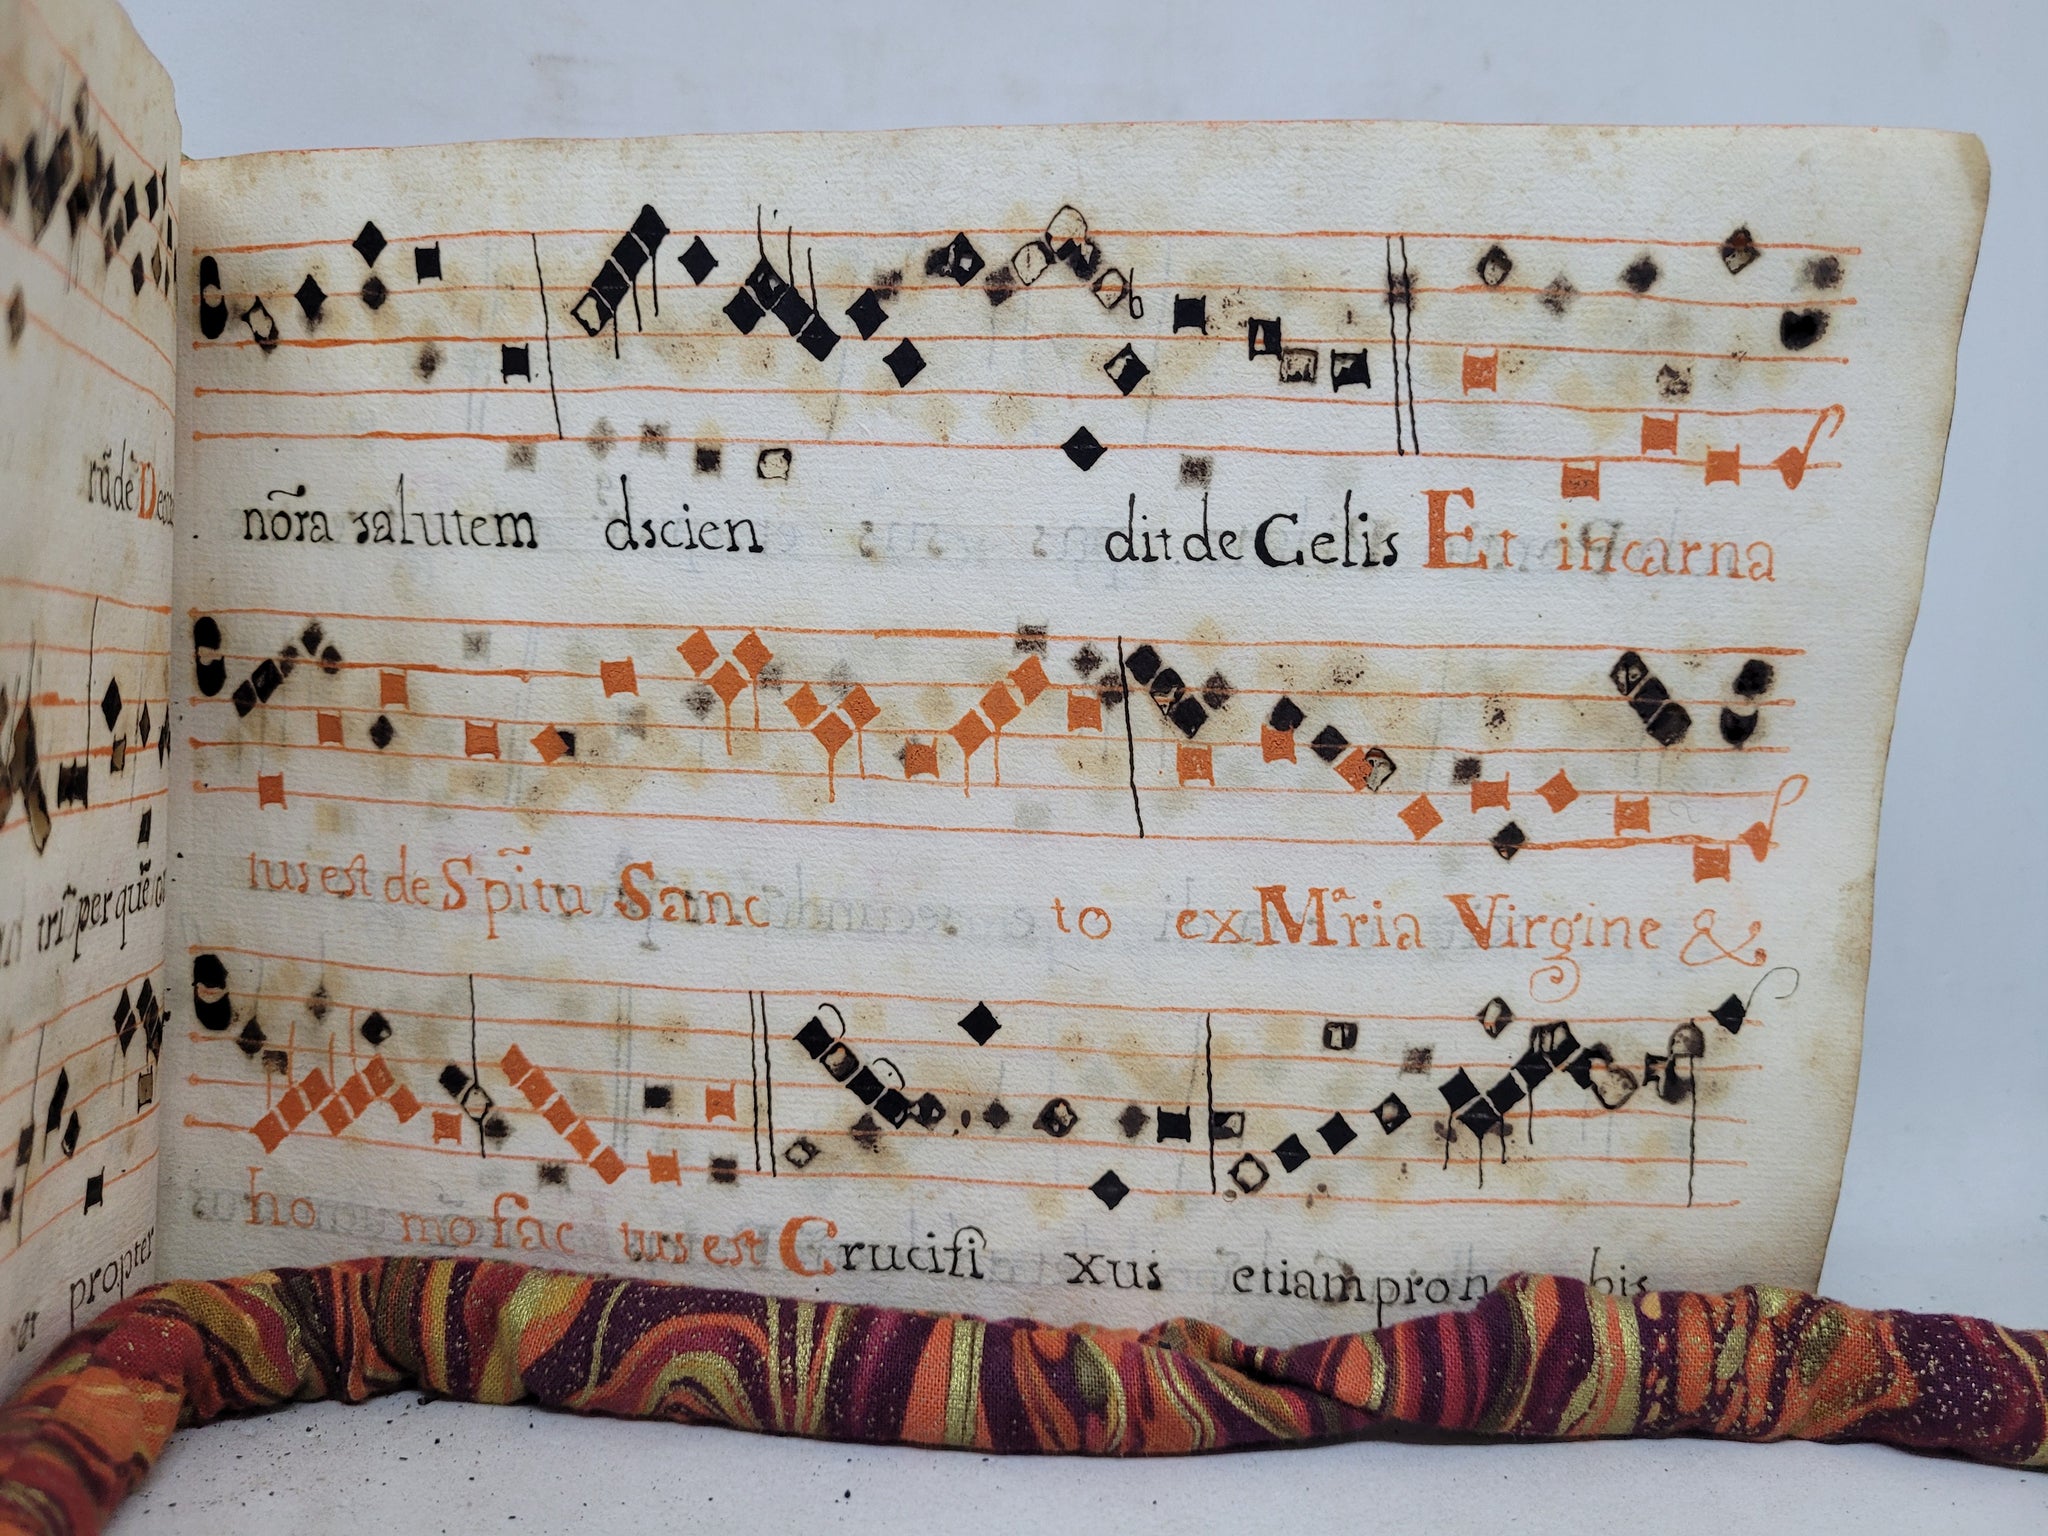 rũde Deum
trĩ per quẽ
propter
nõra salutem dscien dit de Celis Et incarna
tus est de Spĩtu Sanc to ex Mªria Virgine &
ho mo fac tus est Crucifi xus etiam pro n bis